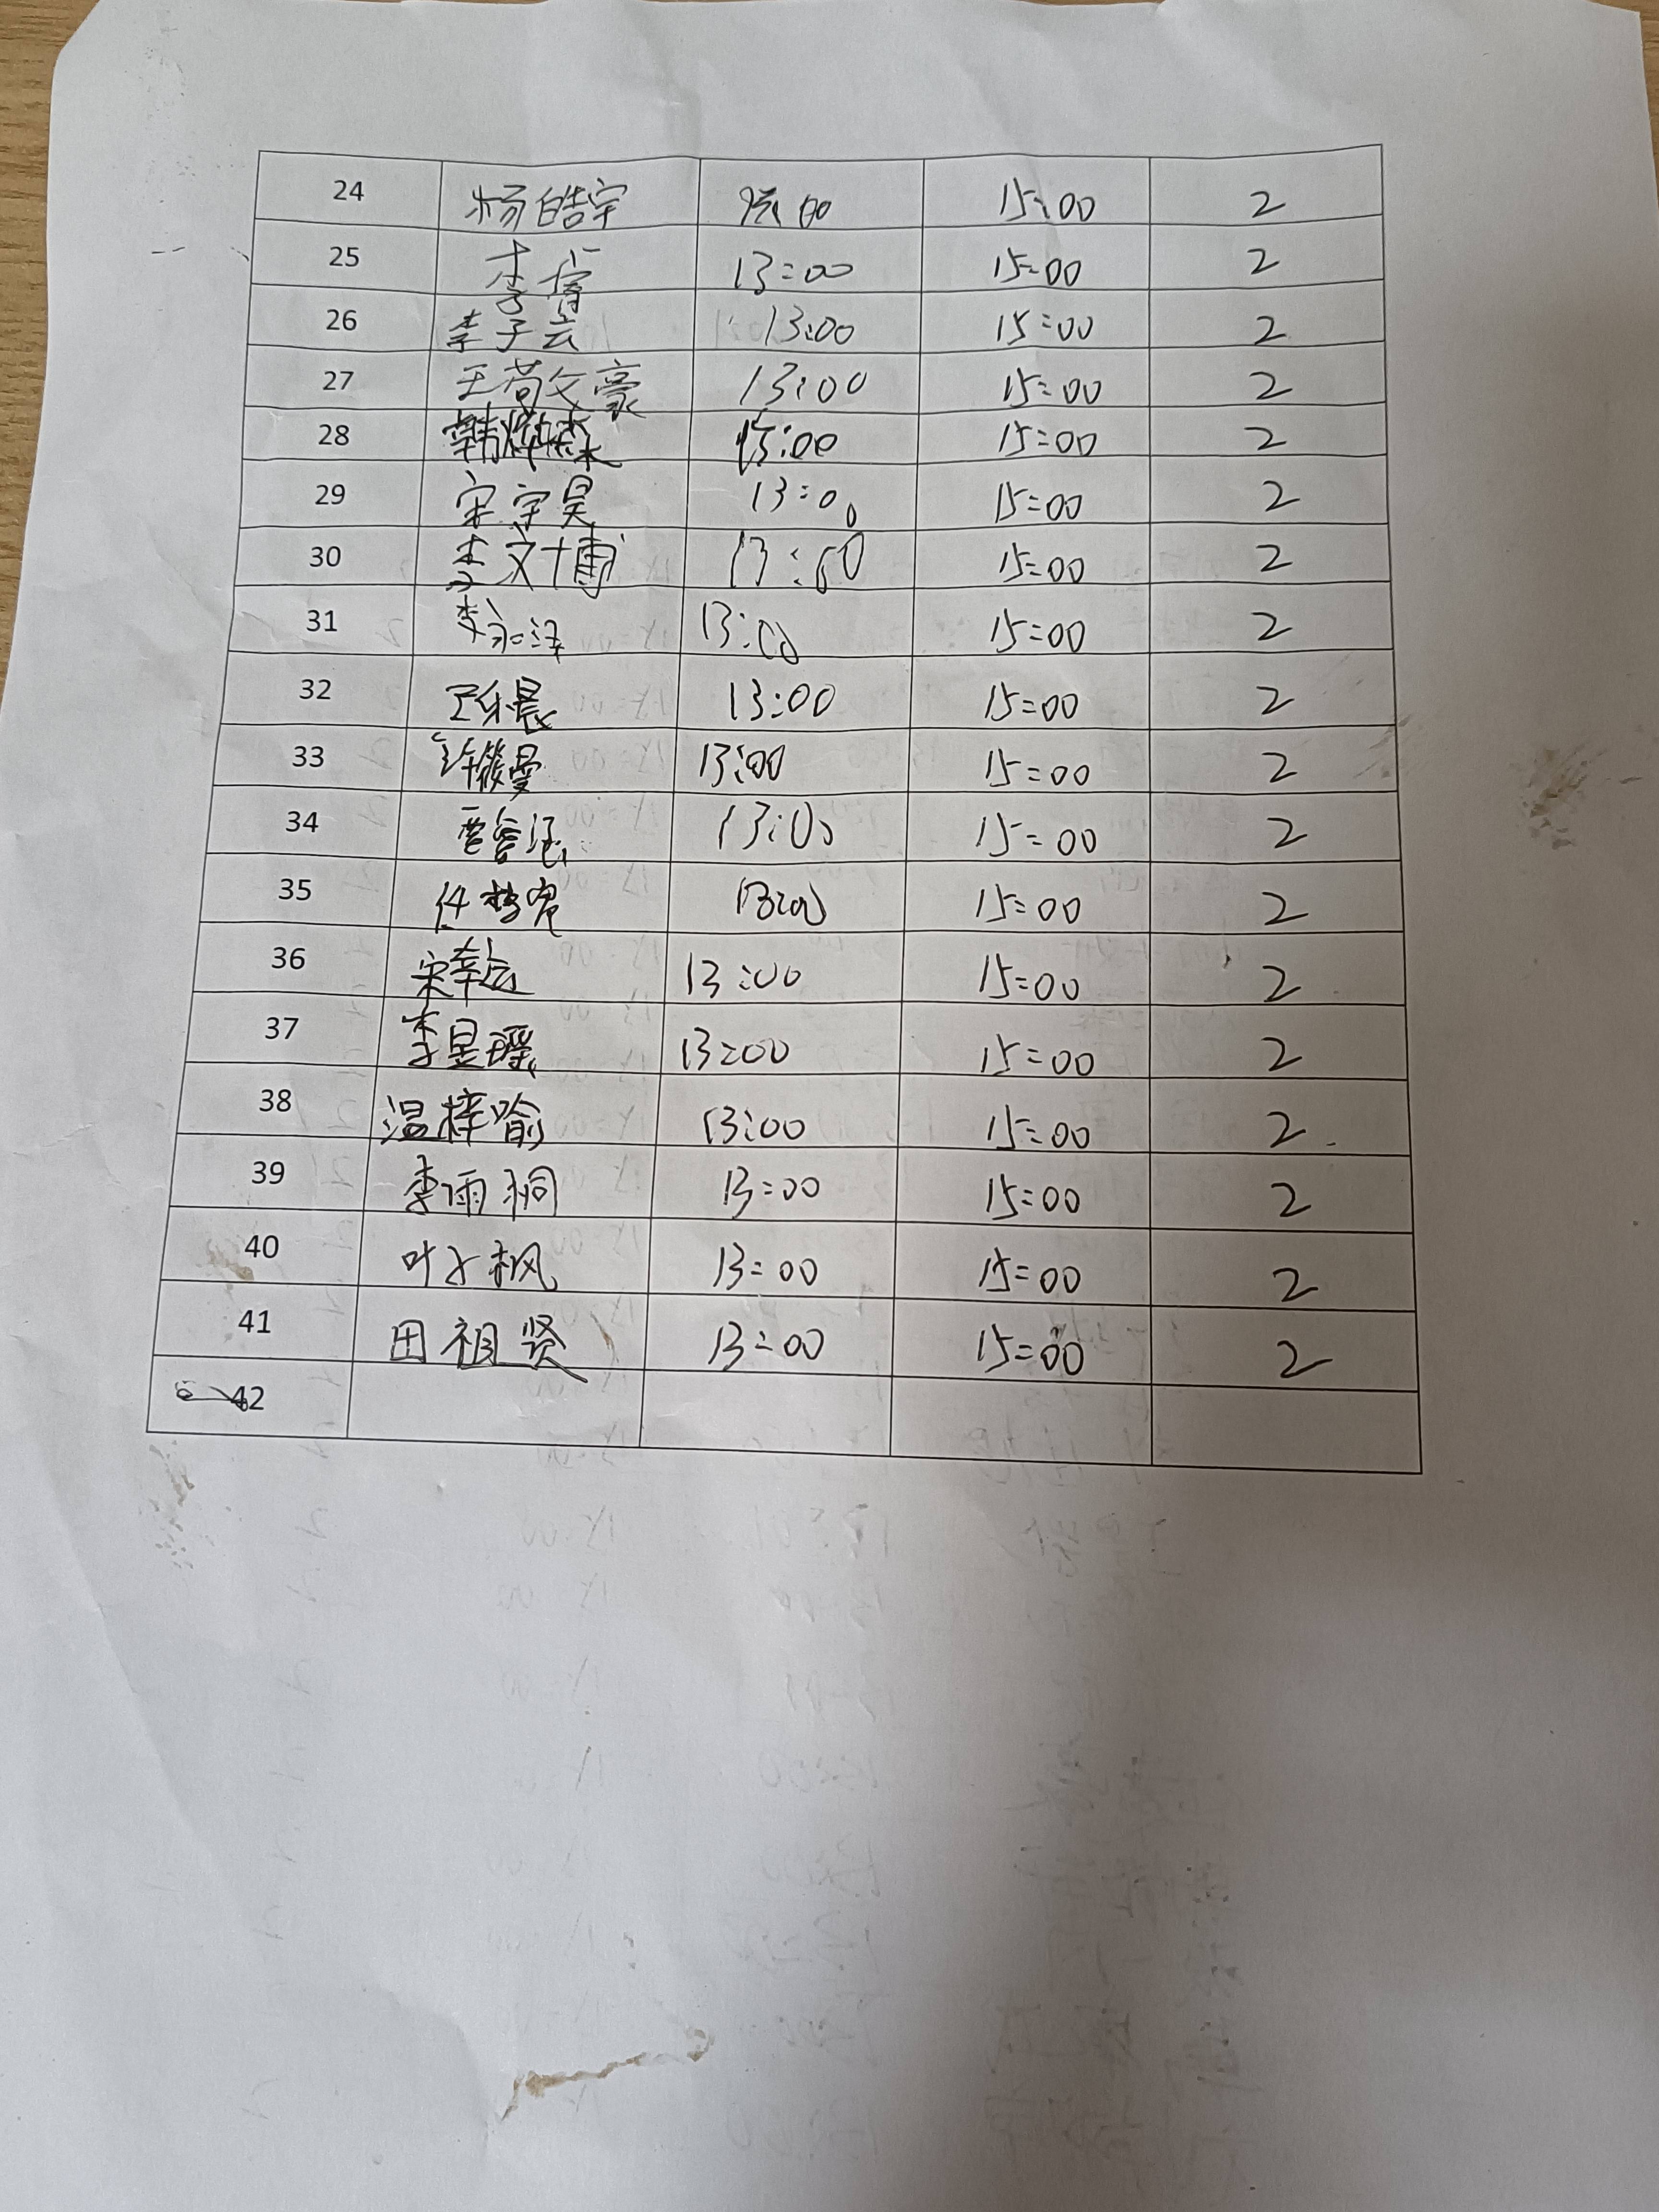 24 杨皓宇 15:00 2
25 李 13:00 15:00 2
26 李子云 13:00 15:00 2
27 王苟文豪 13:00 15:00 2
28 韩烨 13:00 15:00 2
29 宋宇昊 13:00 15:00 2
30 李文博 13:00 15:00 2
31 李 泽 13:00 15:00 2
32 晨 13:00 15:00 2
33 许筱曼 13:00 15:00 2
34 涵 13:00 15:00 2
35 任 13:00 15:00 2
36 宋幸 13:00 15:00 2
37 李昱瑾 13:00 15:00 2
38 温梓喻 13:00 15:00 2
39 李雨桐 13:00 15:00 2
40 叶子枫 13:00 15:00 2
41 田祖贤 13:00 15:00 2
42